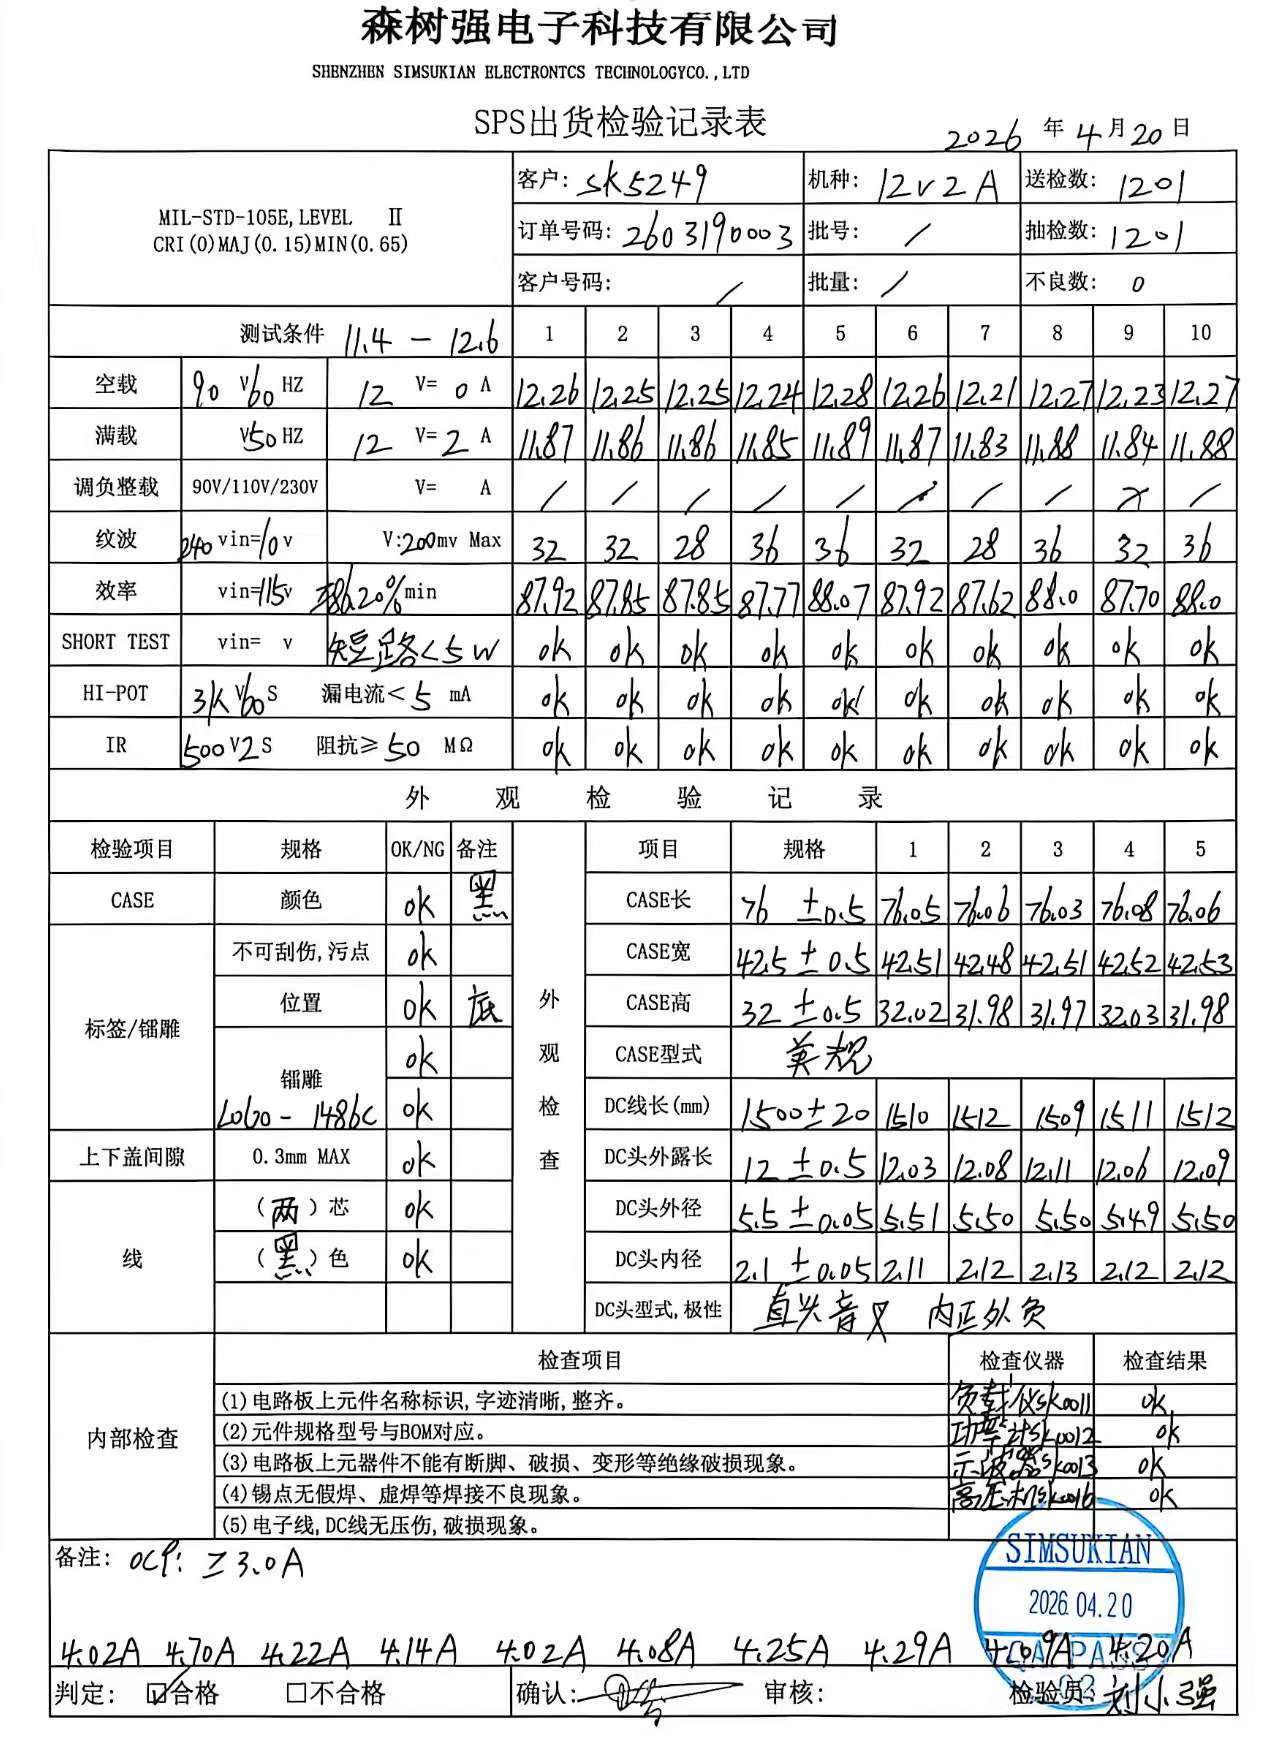 森树强电子科技有限公司
SHENZHEN SIMSUKIAN ELECTRONTCS TECHNOLOGYCO.,LTD
SPS出货检验记录表
2026 年 4 月 20 日
MIL-STD-105E,LEVEL Ⅱ
CRI(0)MAJ(0.15)MIN(0.65)
客户: SK5249 机种: 12V2A 送检数: 1201
订单号码: 2603190003 批号: / 抽检数: 1201
客户号码: / 批量: / 不良数: 0
测试条件 11.4 - 12.6 1 2 3 4 5 6 7 8 9 10
空载 90 V60 HZ 12 V= 0 A 12.26 12.25 12.25 12.24 12.28 12.26 12.21 12.27 12.23 12.27
满载 V50 HZ 12 V= 2 A 11.87 11.86 11.86 11.85 11.89 11.87 11.83 11.88 11.84 11.88
调负整载 90V/110V/230V V= A / / / / / / / / /
纹波 240 vin=10v V:200mv Max 32 32 28 36 36 32 28 36 32 36
效率 vin=115v 86.20%min 87.92 87.85 87.85 87.77 88.07 87.92 87.62 88.0 87.70 88.0
SHORT TEST vin= v 短路<5W ok ok ok ok ok ok ok ok ok ok
HI-POT 3K V60S 漏电流< 5 mA ok ok ok ok ok ok ok ok ok ok
IR 500V2S 阻抗≥ 50 MΩ ok ok ok ok ok ok ok ok ok ok
外 观 检 验 记 录
检验项目 规格 OK/NG 备注 项目 规格 1 2 3 4 5
CASE 颜色 ok 黑 CASE长 76 ±0.5 76.05 76.06 76.03 76.08 76.06
不可刮伤,污点 ok CASE宽 42.5 ± 0.5 42.51 42.48 42.51 42.52 42.53
标签/镭雕 位置 ok 底 外观检查 CASE高 32 ±0.5 32.02 31.98 31.97 32.03 31.98
镭雕 ok CASE型式 美规
1486C ok DC线长(mm) 1500±20 1510 1512 1509 1511 1512
上下盖间隙 0.3mm MAX ok DC头外露长 12 ±0.5 12.03 12.08 12.11 12.06 12.09
线 (两)芯 ok DC头外径 5.5 ±0.05 5.51 5.50 5.50 5.49 5.50
(黑)色 ok DC头内径 2.1 ±0.05 2.11 2.12 2.13 2.12 2.12
DC头型式,极性 直头音叉 内正外负
检查项目 检查仪器 检查结果
内部检查
(1)电路板上元件名称标识,字迹清晰,整齐。 负载仪SK0011 ok
(2)元件规格型号与BOM对应。 功率计SK0012 ok
(3)电路板上元器件不能有断脚、破损、变形等绝缘破损现象。 示波器SK0013 ok
(4)锡点无假焊、虚焊等焊接不良现象。 高压机SK0016 ok
(5)电子线,DC线无压伤,破损现象。
备注: OCP: ≥3.0A
SIMSUKIAN
2026.04.20
QA PASS
4.02A 4.70A 4.22A 4.14A 4.02A 4.08A 4.25A 4.29A 4.09A 4.20A
判定: ☑合格 □不合格 确认: 审核: 检验员: 刘小强